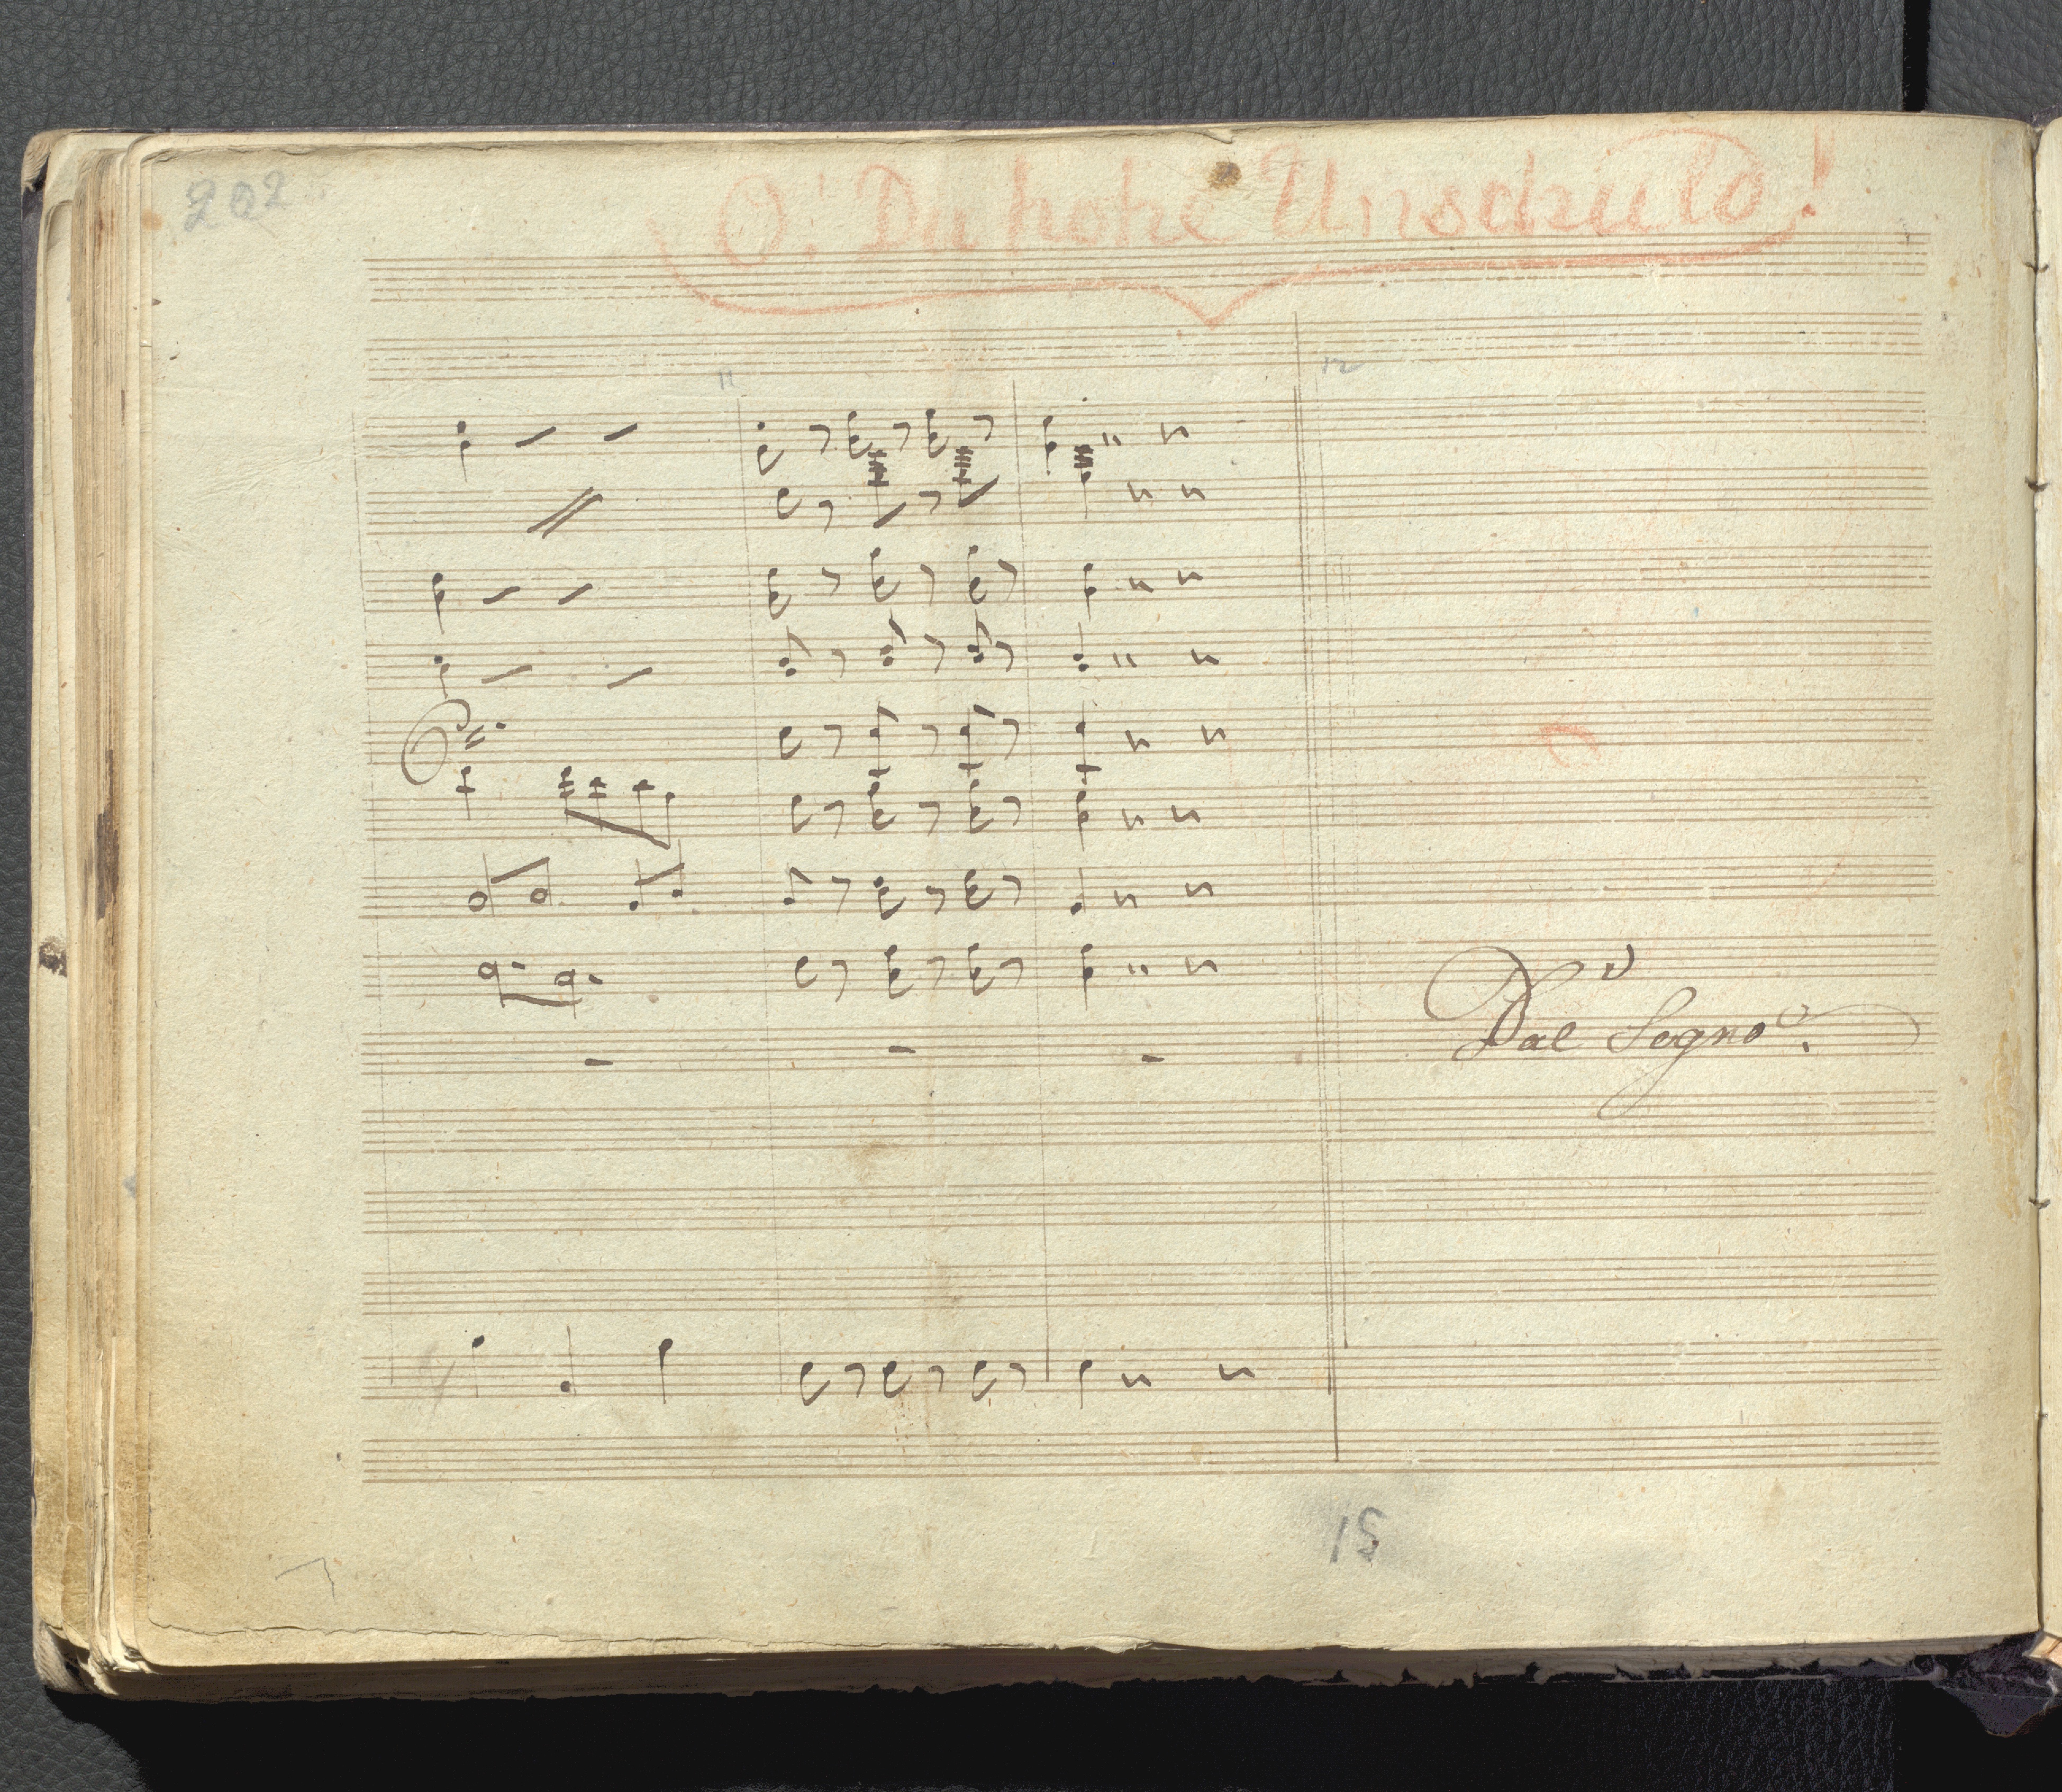 202
O! Du hohe Unschuld!
11 12
Dal Segno.
15